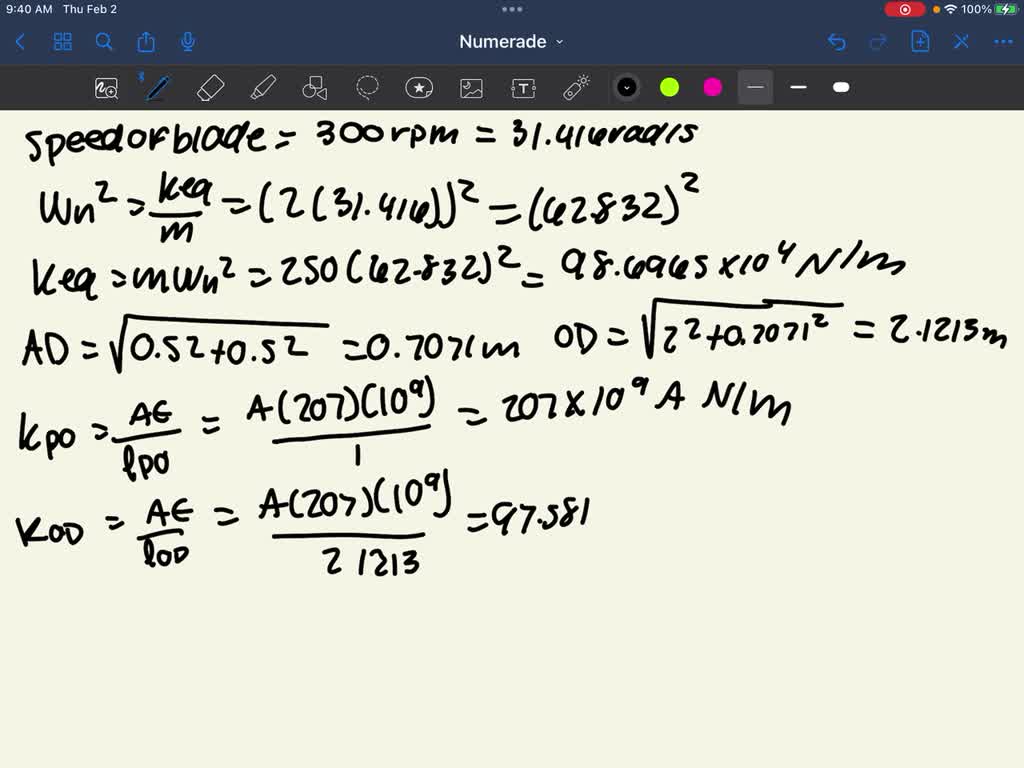 9:40 AM Thu Feb 2
100%
Numerade
speed of blade = 300 rpm = 31.416 rad/s
Wn² = keq/m = (2(31.416))² = (62.832)²
keq = mWn² = 250(62.832)² = 98.6965 x 10⁴ N/m
AD = √0.52+0.52 = 0.7071m OD = √2²+0.7071² = 2.1213m
kpo = AE/lpo = A(207)(10⁹)/1 = 207 x 10⁹ A N/m
kOD = AE/lOD = A(207)(10⁹)/2 1213 = 97.581